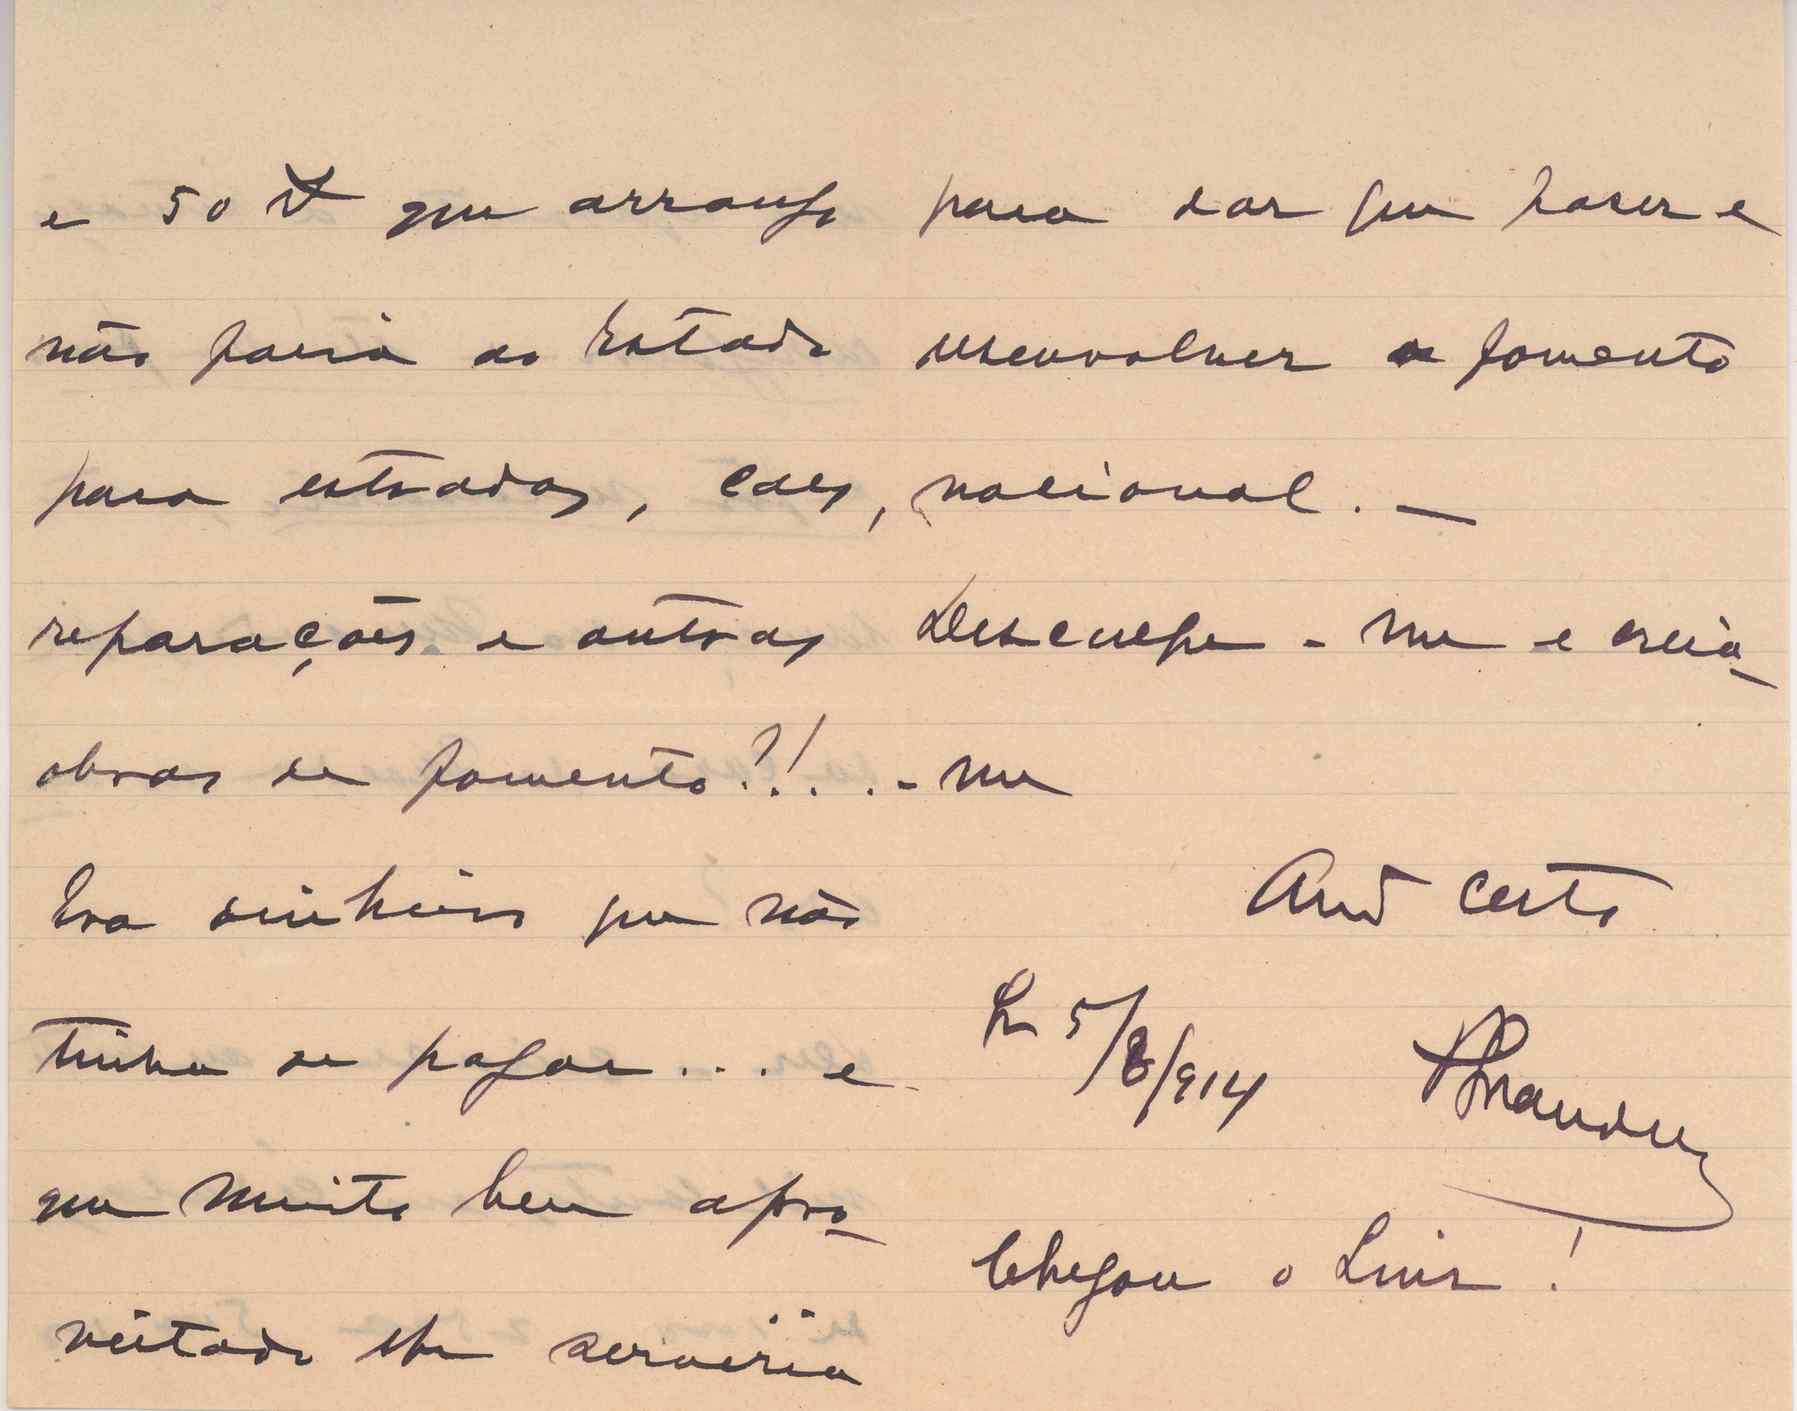 e 50 que arranjo
não faria ao Estado
para estradas, caes,
reparações e outras
obras de fomento?!..
Era dinheiro que não
tinha de pagar... e
que muito bem apro-
veitado lhe serviria
para dar que fazer e
desenvolver o fomento
nacional. —
Desculpe-me e creia-
-me
Amº certo
Lx 5/8/914
Chegou o Luiz!